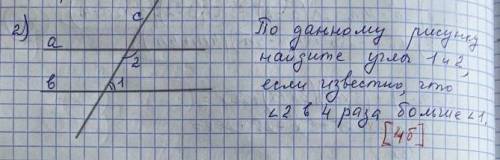 2)
c
a
2
в
1
По данному рисунку
найдите углы 1 и 2,
если известно, что
∠2 в 4 раза больше ∠1.
[4б]